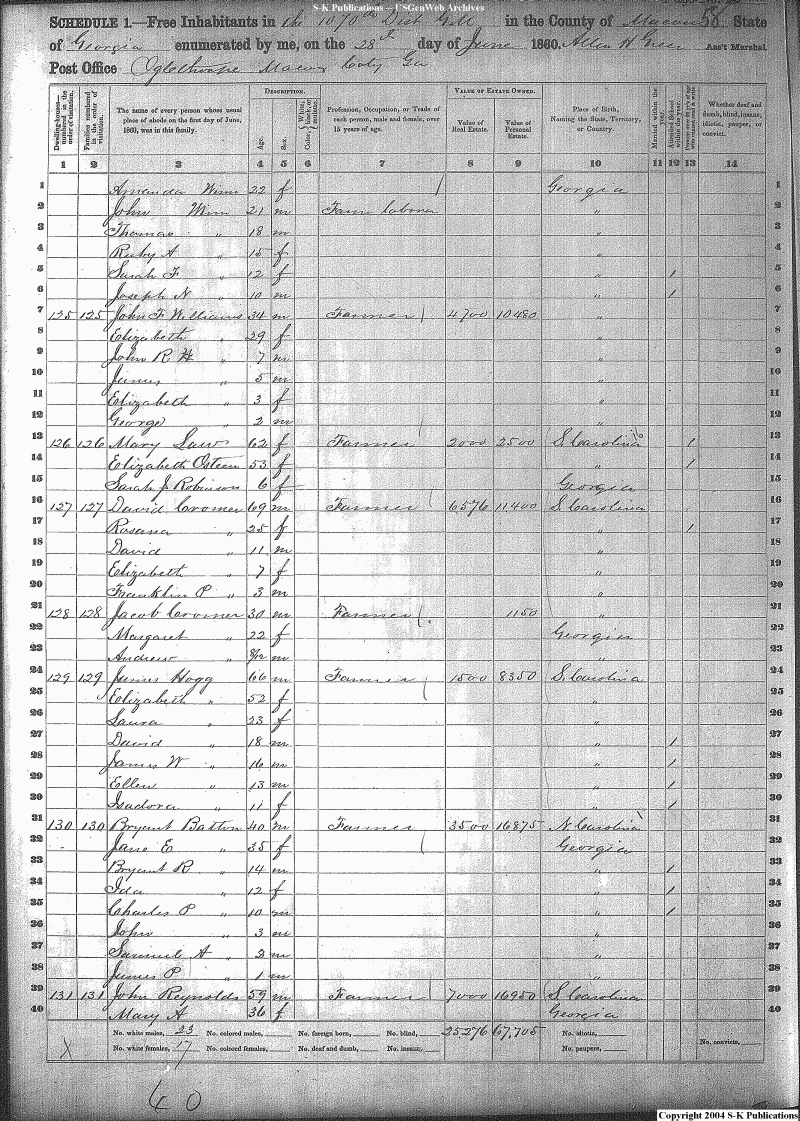 S-K Publications – USGenWeb Archives
SCHEDULE 1.—Free Inhabitants in the 1070th Dist G.M in the County of Macon State 58
of Georgia enumerated by me, on the 28th day of June 1860. Allen H Greer Ass't Marshal.
Post Office Oglethorpe Macon Coty Ga
Dwelling-houses—numbered in the order of visitation.
Families numbered in the order of visitation.
The name of every person whose usual place of abode on the first day of June, 1860, was in this family.
DESCRIPTION.
Age.
Sex.
Color, White, black, or mulatto.
Profession, Occupation, or Trade of each person, male and female, over 15 years of age.
VALUE OF ESTATE OWNED.
Value of Real Estate.
Value of Personal Estate.
Place of Birth, Naming the State, Territory, or Country.
Married within the year.
Attended School within the year.
Whether deaf and dumb, blind, insane, idiotic, pauper, or convict.
1 2 3 4 5 6 7 8 9 10 11 12 13 14
1 Amanda Winn 22 f Georgia 1
2 John Winn 21 m Farm laborer " 2
3 Thomas " 18 m " 3
4 Ruby A " 15 f " 4
5 Sarah F " 12 f " / 5
6 Joseph N " 10 m " / 6
7 125 125 John F Williams 34 m Farmer 4700 10480 " 7
8 Elizabeth " 29 f " 8
9 John R H " 7 m " 9
10 James " 5 m " 10
11 Elizabeth " 3 f " 11
12 George " 2 m " 12
13 126 126 Mary Law 62 f Farmer 2000 2500 S. Carolina / 13
14 Elizabeth Osteen 53 f " / 14
15 Sarah J Robinson 6 f Georgia 15
16 127 127 David Cromer 69 m Farmer 6576 11400 S. Carolina 16
17 Rosana " 25 f " / 17
18 David " 11 m " 18
19 Elizabeth " 7 f " 19
20 Franklin P " 3 m " 20
21 128 128 Jacob Cromer 30 m Farmer 1150 " 21
22 Margaret " 22 f Georgia 22
23 Andrew " 8/12 m " 23
24 129 129 James Hogg 66 m Farmer 1500 8350 S. Carolina 24
25 Elizabeth " 52 f " 25
26 Laura " 23 f " 26
27 David " 18 m " / 27
28 James W " 16 m " / 28
29 Ellen " 13 m " / 29
30 Isadora " 11 f " / 30
31 130 130 Bryant Batton 40 m Farmer 3500 16875 N. Carolina 31
32 Jane E " 35 f Georgia 32
33 Bryant R " 14 m " / 33
34 Ida " 12 f " / 34
35 Charles P " 10 m " / 35
36 John " 3 m " 36
37 Samuel A " 2 m " 37
38 James P " 1 m " 38
39 131 131 John Reynolds 59 m Farmer 7000 16950 S. Carolina 39
40 Mary A 36 f Georgia 40
No. white males, 23 No. colored males, No. foreign born, No. blind, 25276 67,705 No. idiotic,
No. white females, 17 No. colored females, No. deaf and dumb, No. insane, No. paupers, No. convicts,
X
40
Copyright 2004 S-K Publications